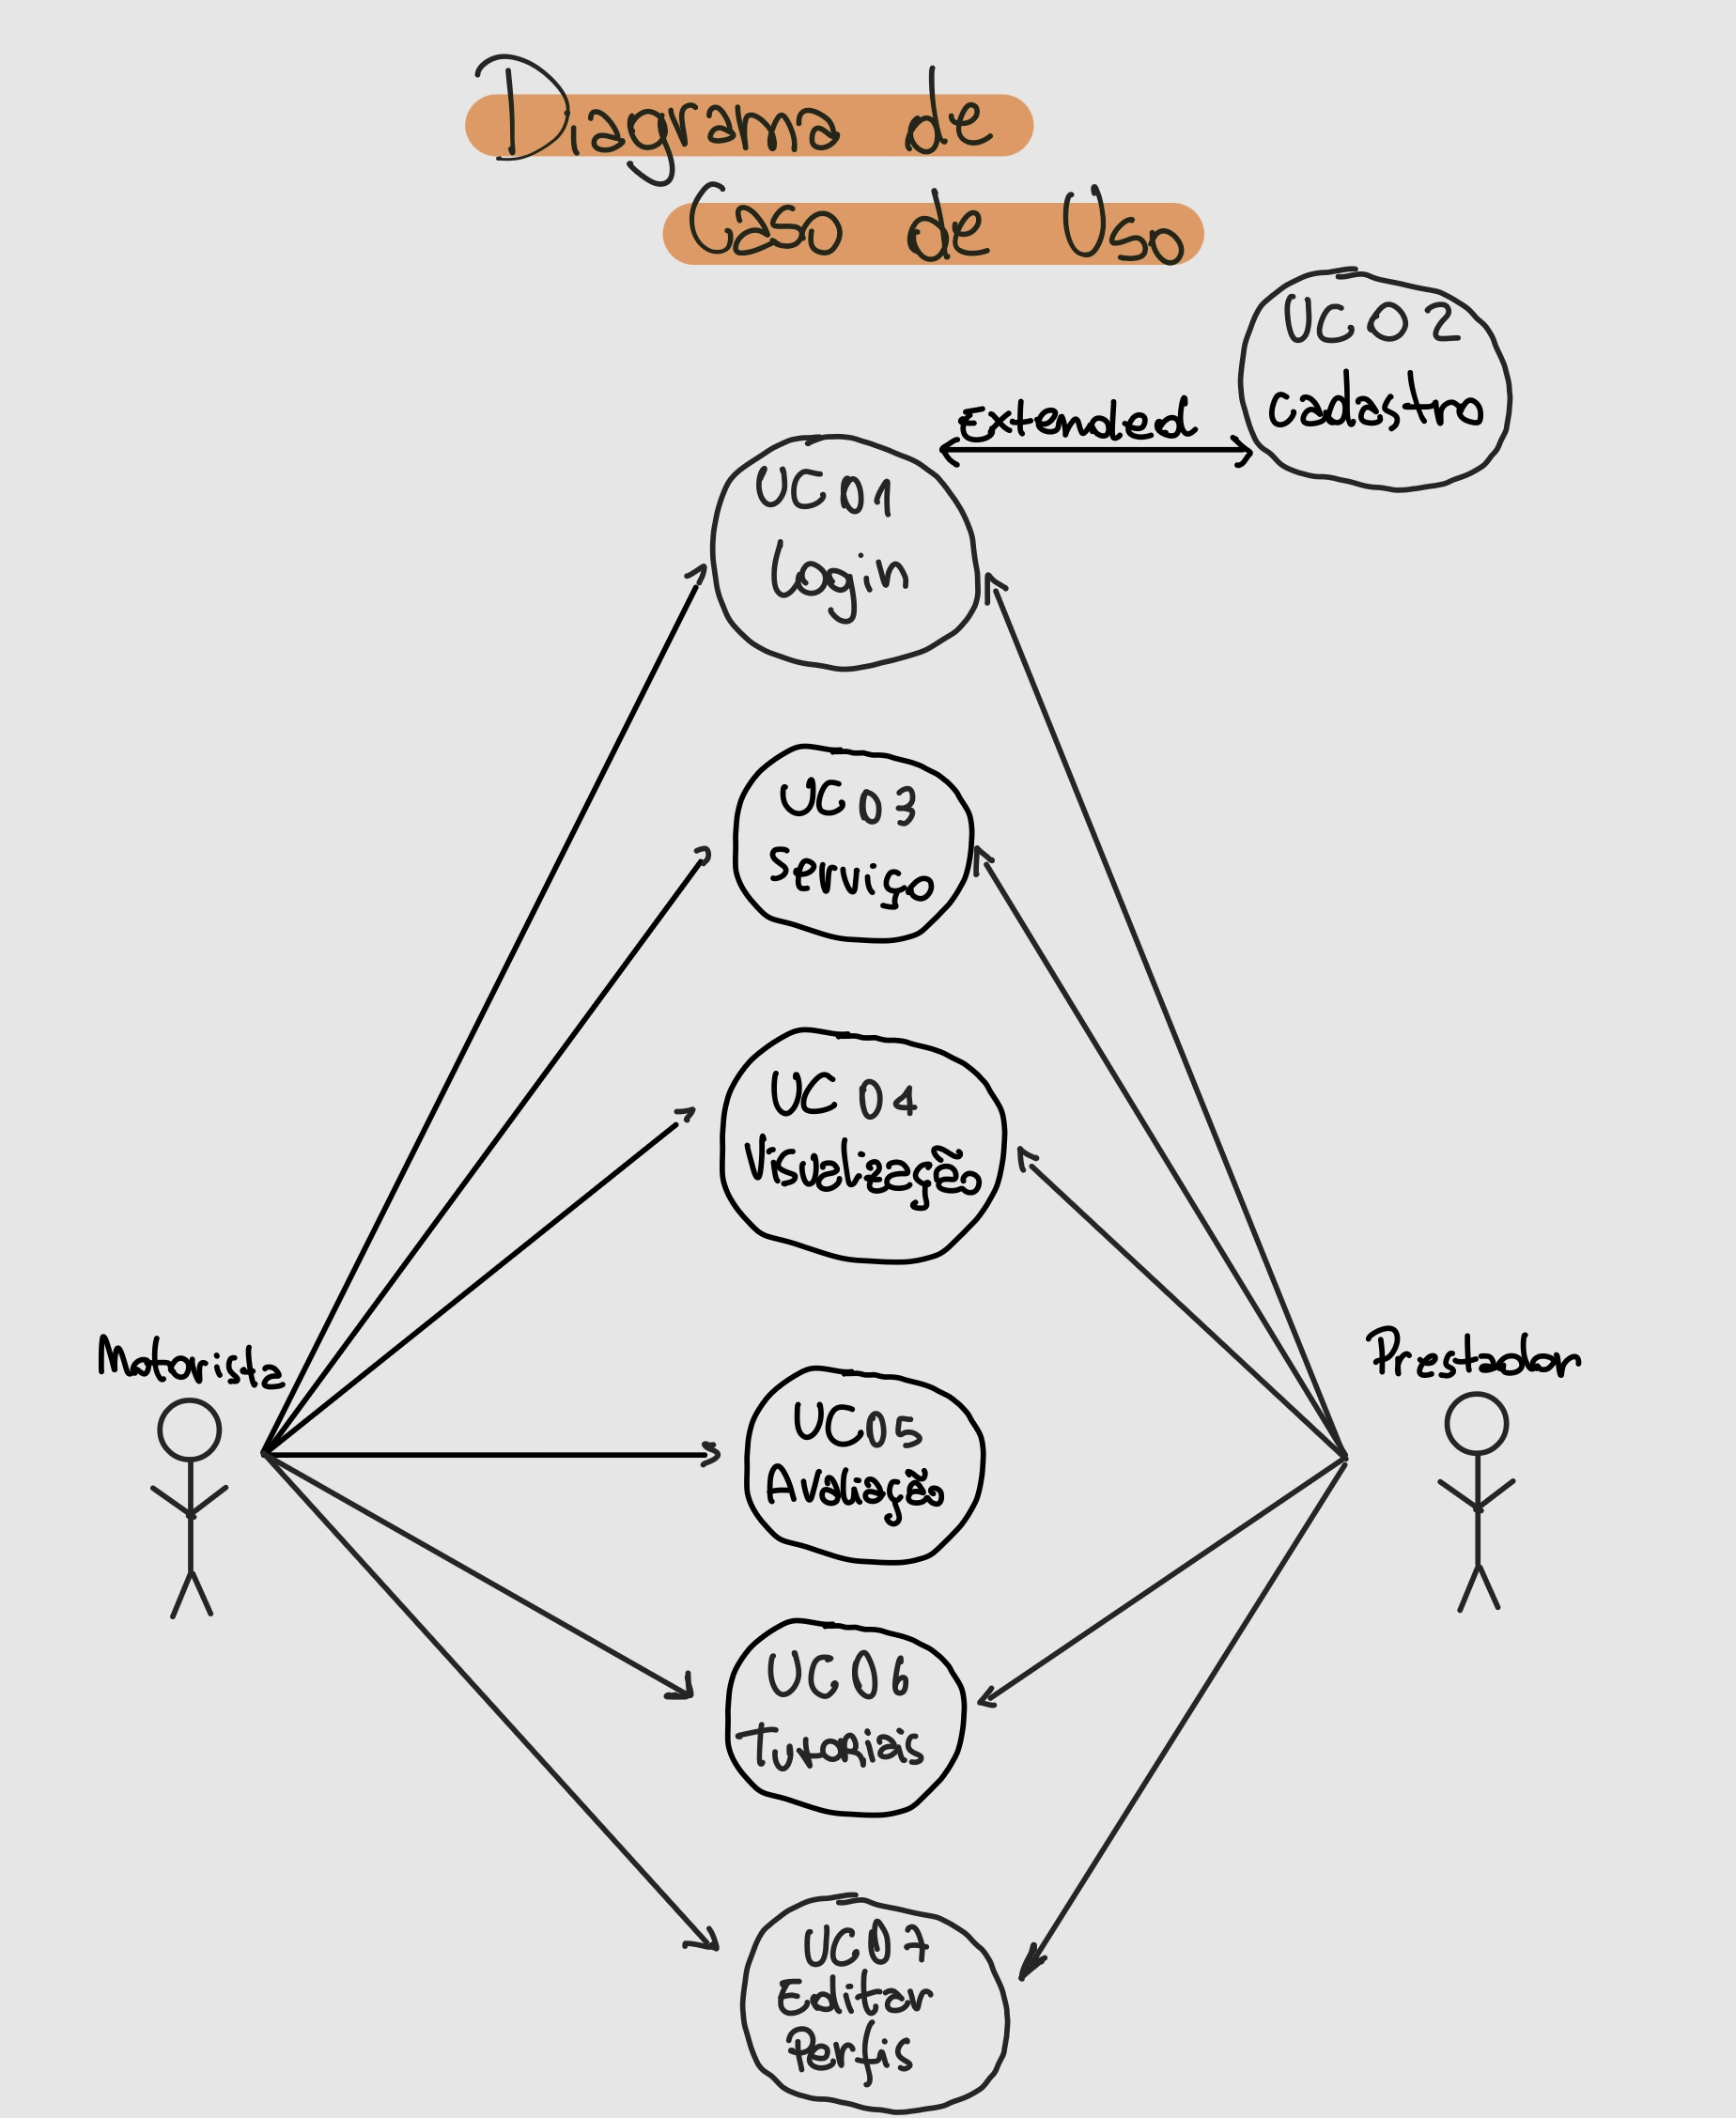 Diagrama de
Caso de Uso
UC02
cadastro
Extended
UC01
Login
UC03
Serviço
UC04
Visualização
Motorista
Prestador
UC05
Avaliação
UC06
Tutoriais
UC07
Editar
Perfis